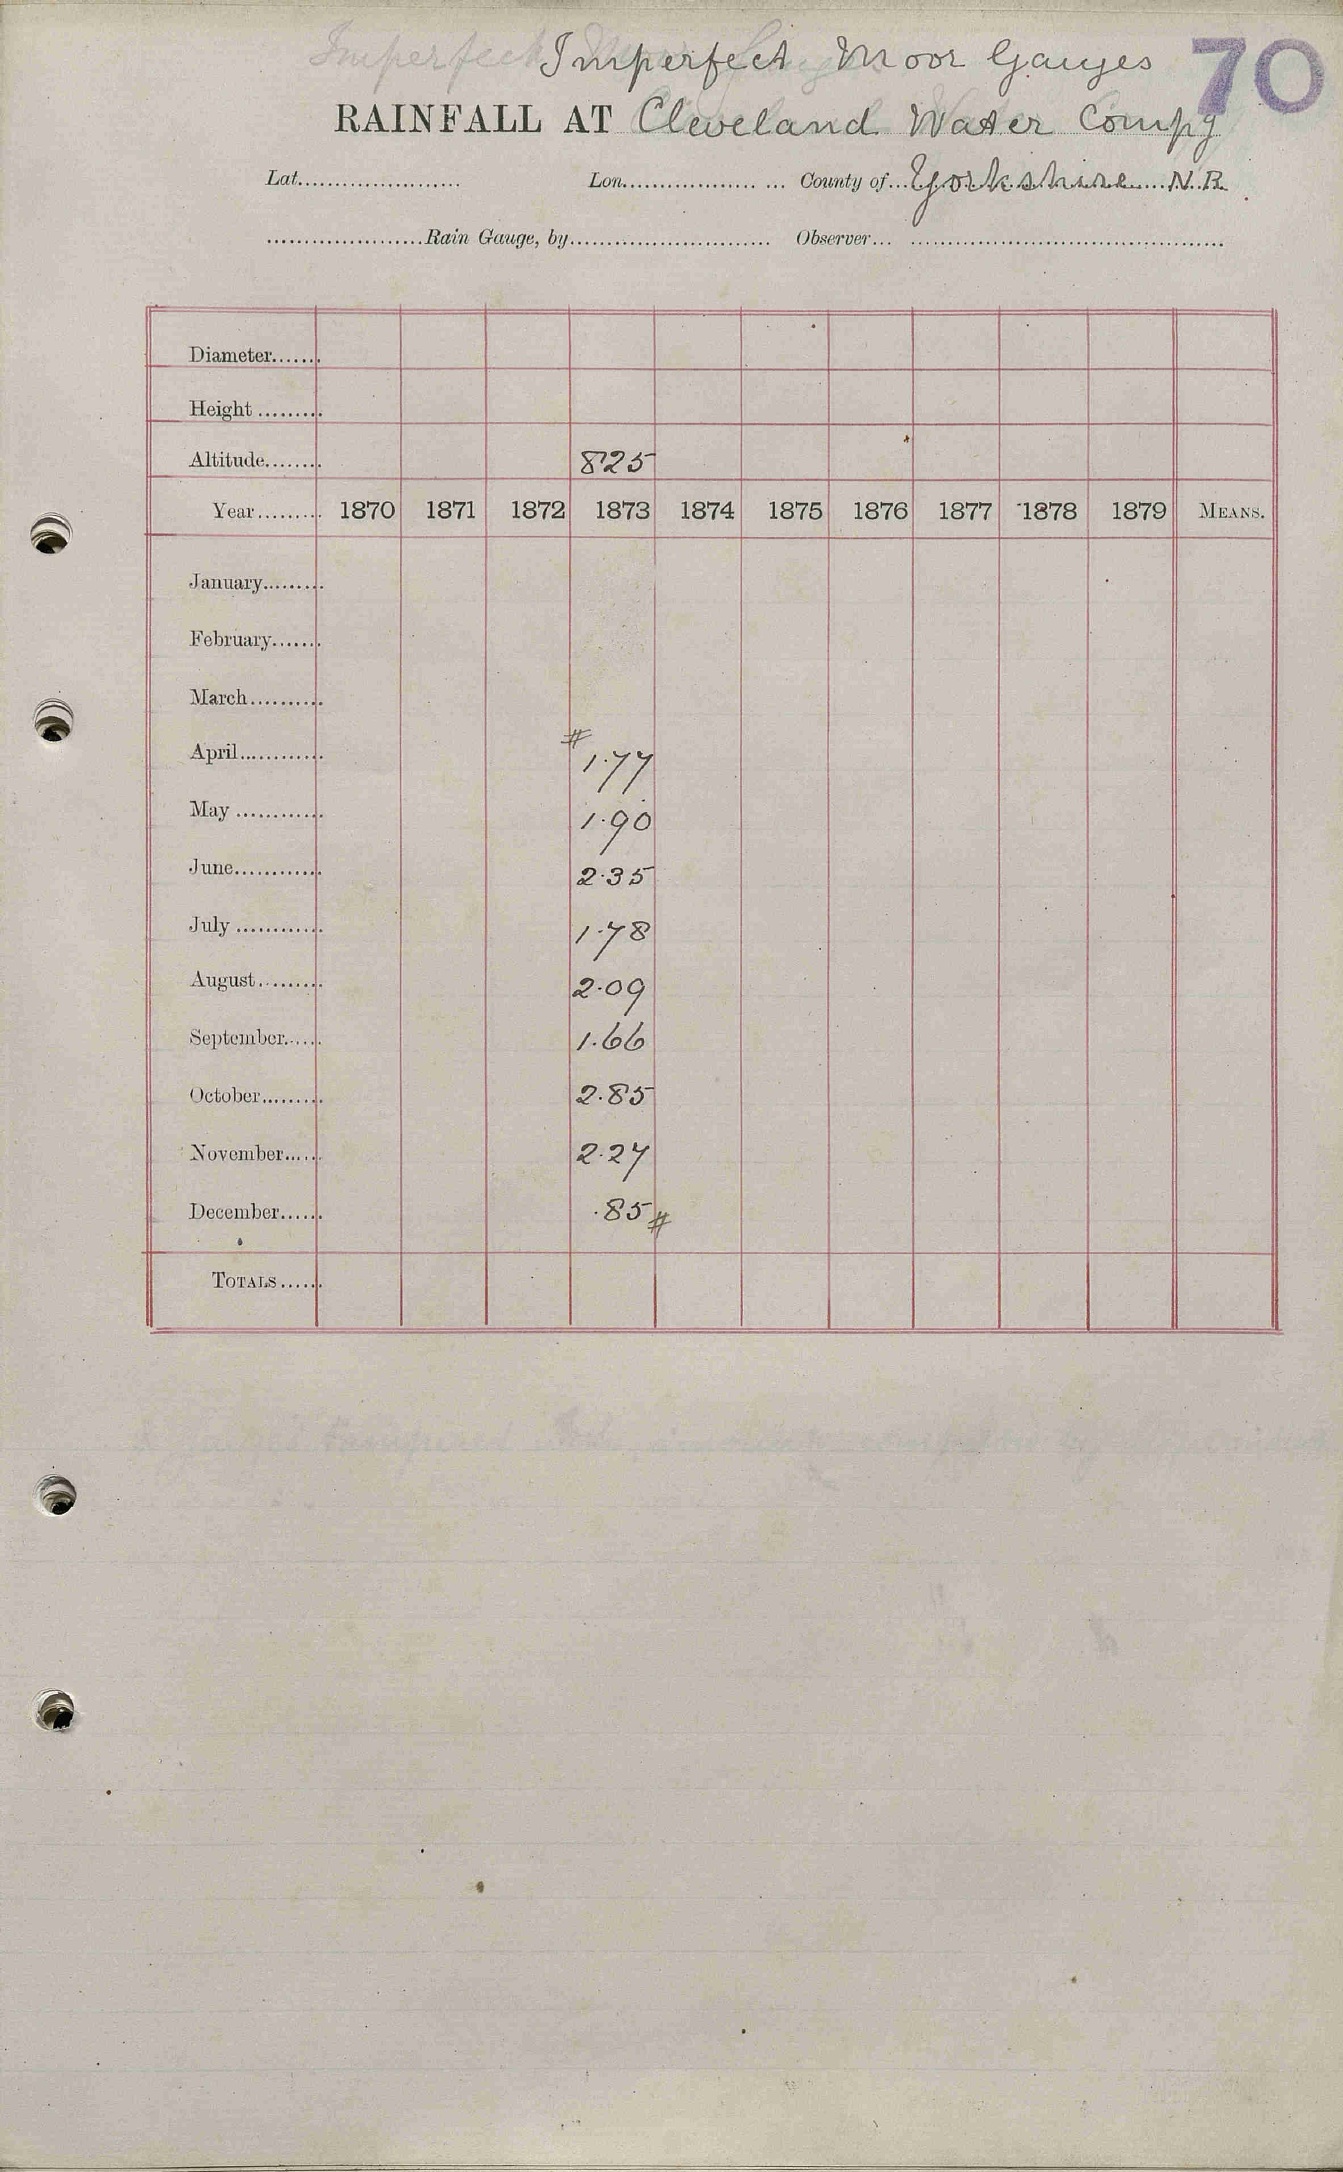 Imperfect Moor Gauges 70
RAINFALL AT Cleveland Water Compy
Lat..................... Lon.................. ... County of...Yorkshire N.R.
.....................Rain Gauge, by........................... Observer... ..........................................
Diameter.......
Height .........
Altitude........ 825
Year......... 1870 1871 1872 1873 1874 1875 1876 1877 1878 1879 MEANS.
January.........
February.......
March..........
#
April............ 1.77
May ............ 1.90
June............ 2.35
July ............ 1.78
August......... 2.09
September...... 1.66
October......... 2.85
November...... 2.27
December...... .85 #
TOTALS......